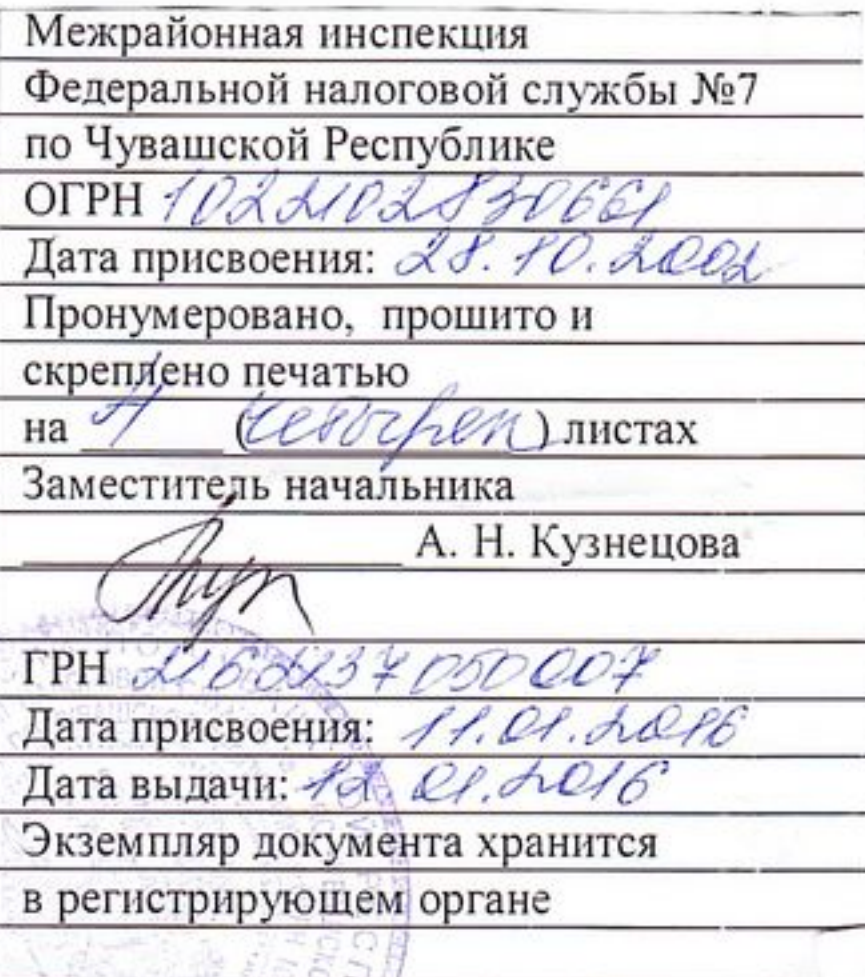 Межрайонная инспекция
Федеральной налоговой службы №7
по Чувашской Республике
ОГРН 1022102830661
Дата присвоения: 28.10.2002
Пронумеровано, прошито и
скреплено печатью
на 4 (четырех) листах
Заместитель начальника
А. Н. Кузнецова
ГРН
Дата присвоения: 11.01.2016
Дата выдачи: 12.01.2016
Экземпляр документа хранится
в регистрирующем органе